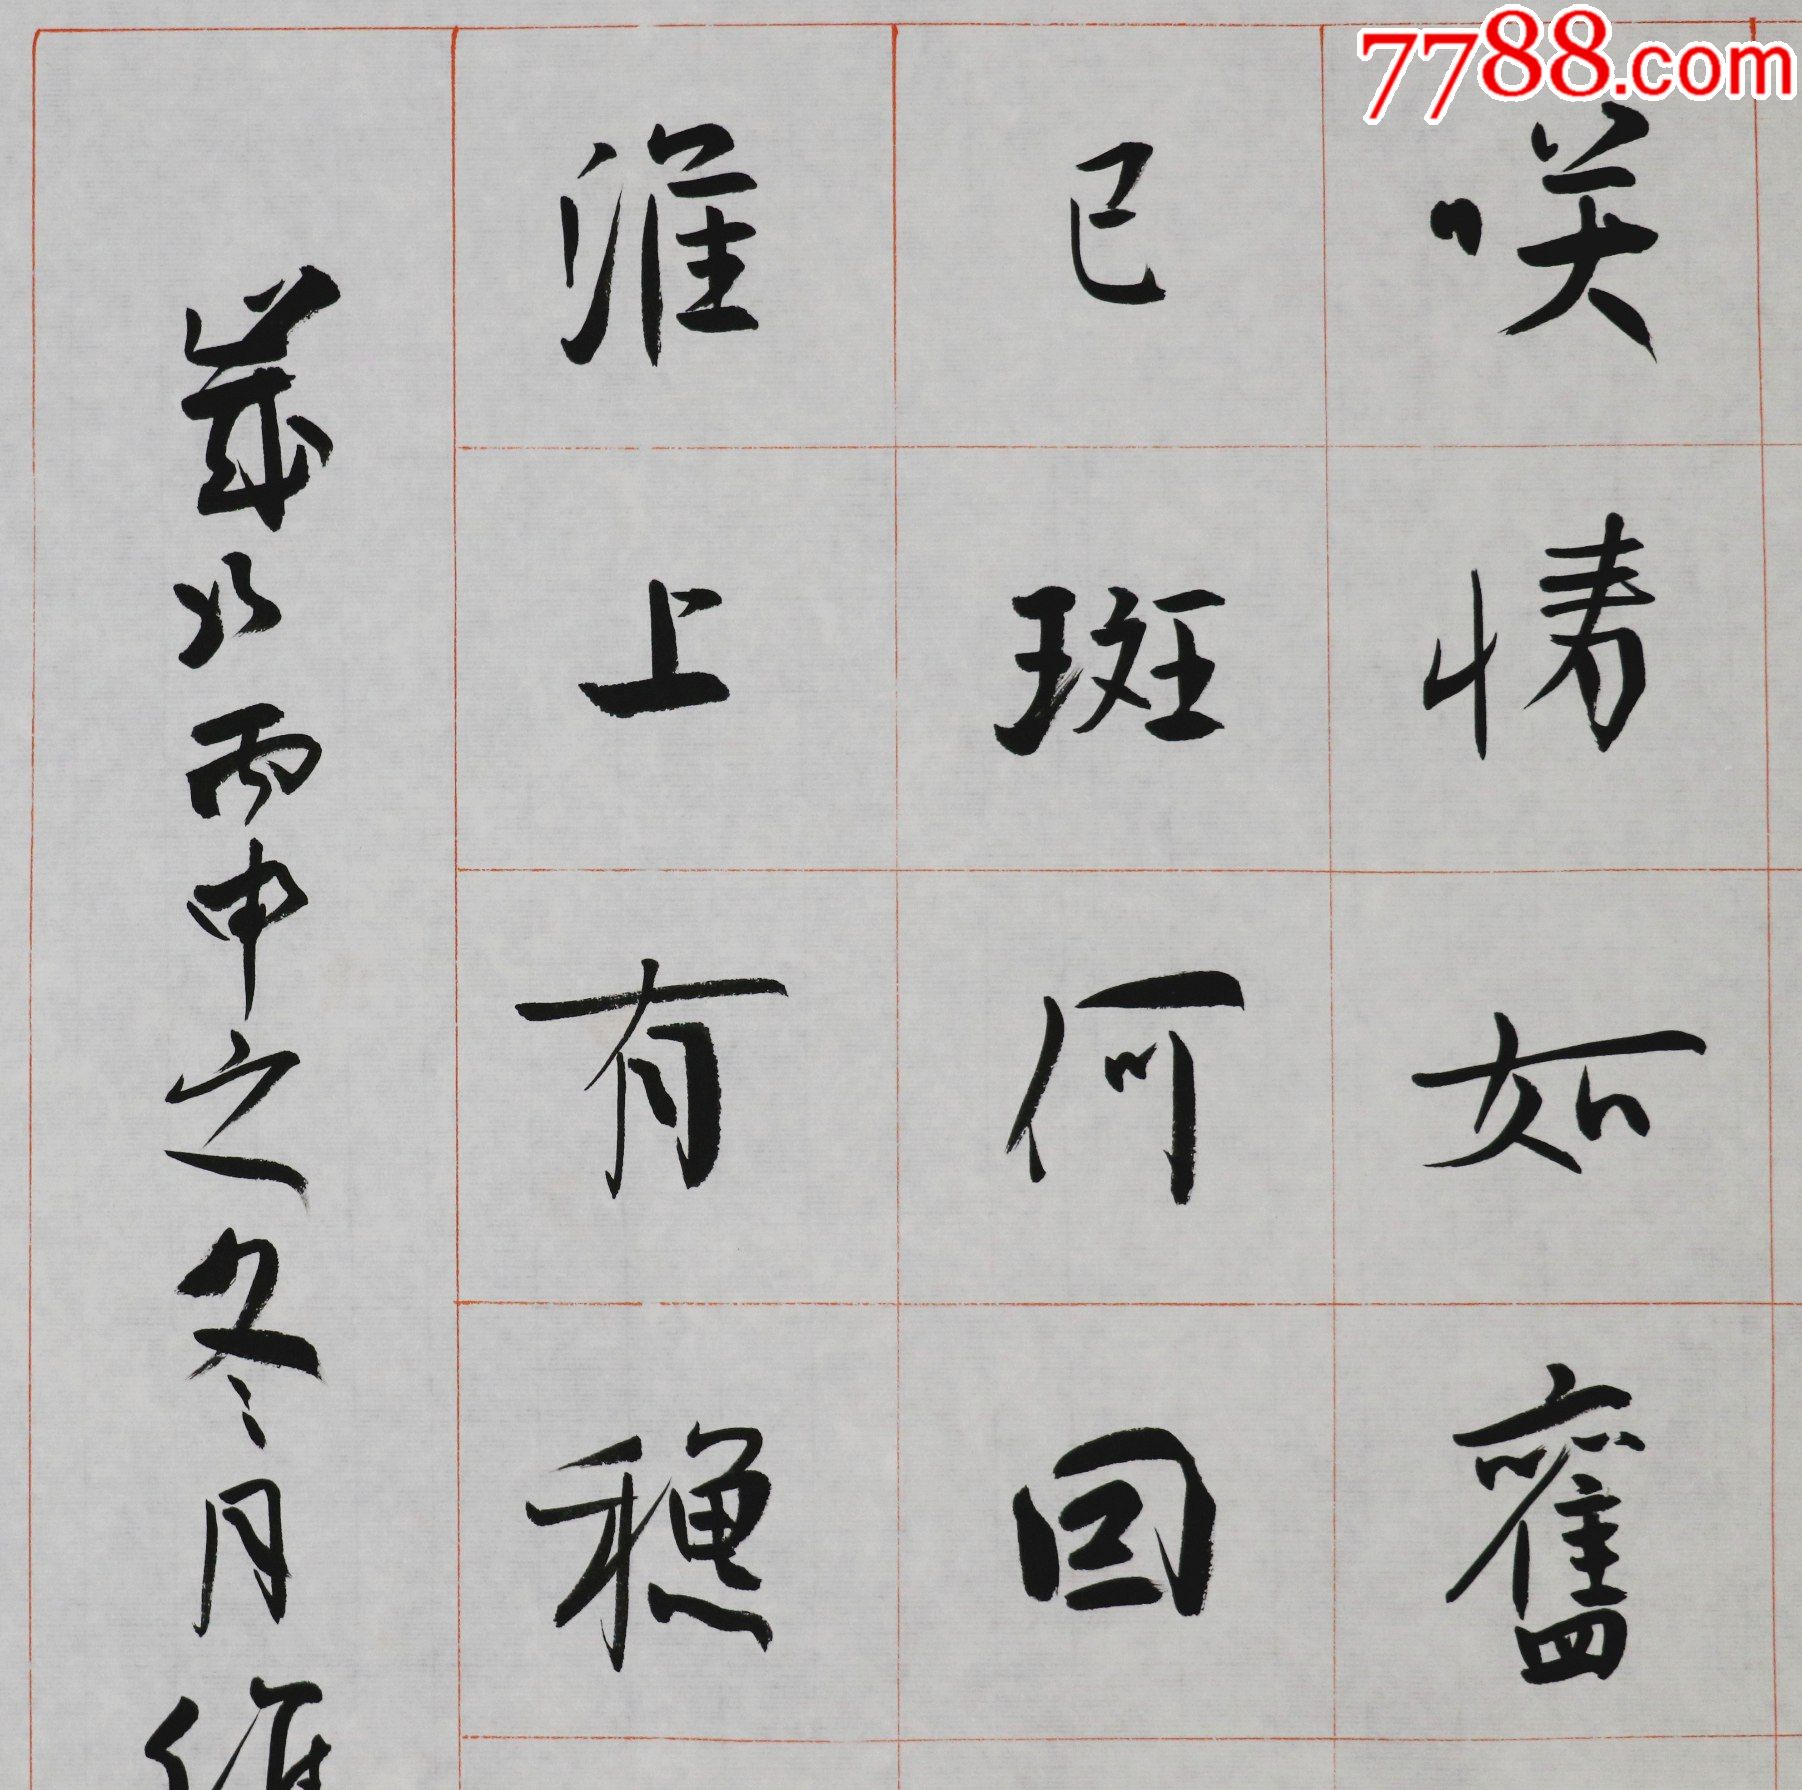 7788.com
咲情如舊
已斑何囙
淮上有穐
歲次丙申之冬月